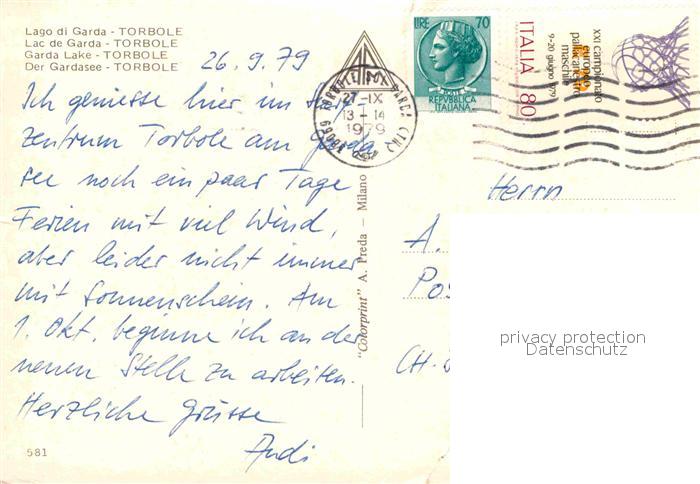 Lago di Garda - TORBOLE
Lac de Garda - TORBOLE
Garda Lake - TORBOLE
Der Gardasee - TORBOLE
26.9.79
Ich geniesse hier im
zentrum Torbole am Garda
see noch ein paar Tage
Ferien mit viel Wind,
aber leider nicht immer
mit Sonnenschein. Am
1. Okt. beginne ich an der
neuen Stelle zu arbeiten.
Herzliche Grüsse
Andi
581
"Colorprint" A. Preda - Milano
LIRE 70
REPVBBLICA
ITALIANA
ITALIA 80
XXI campionato
europeo
pallacanestro
maschile
9-20 giugno 1979
27-IX
13-14
1979
Herrn
A.
Pos
CH-
privacy protection
Datenschutz